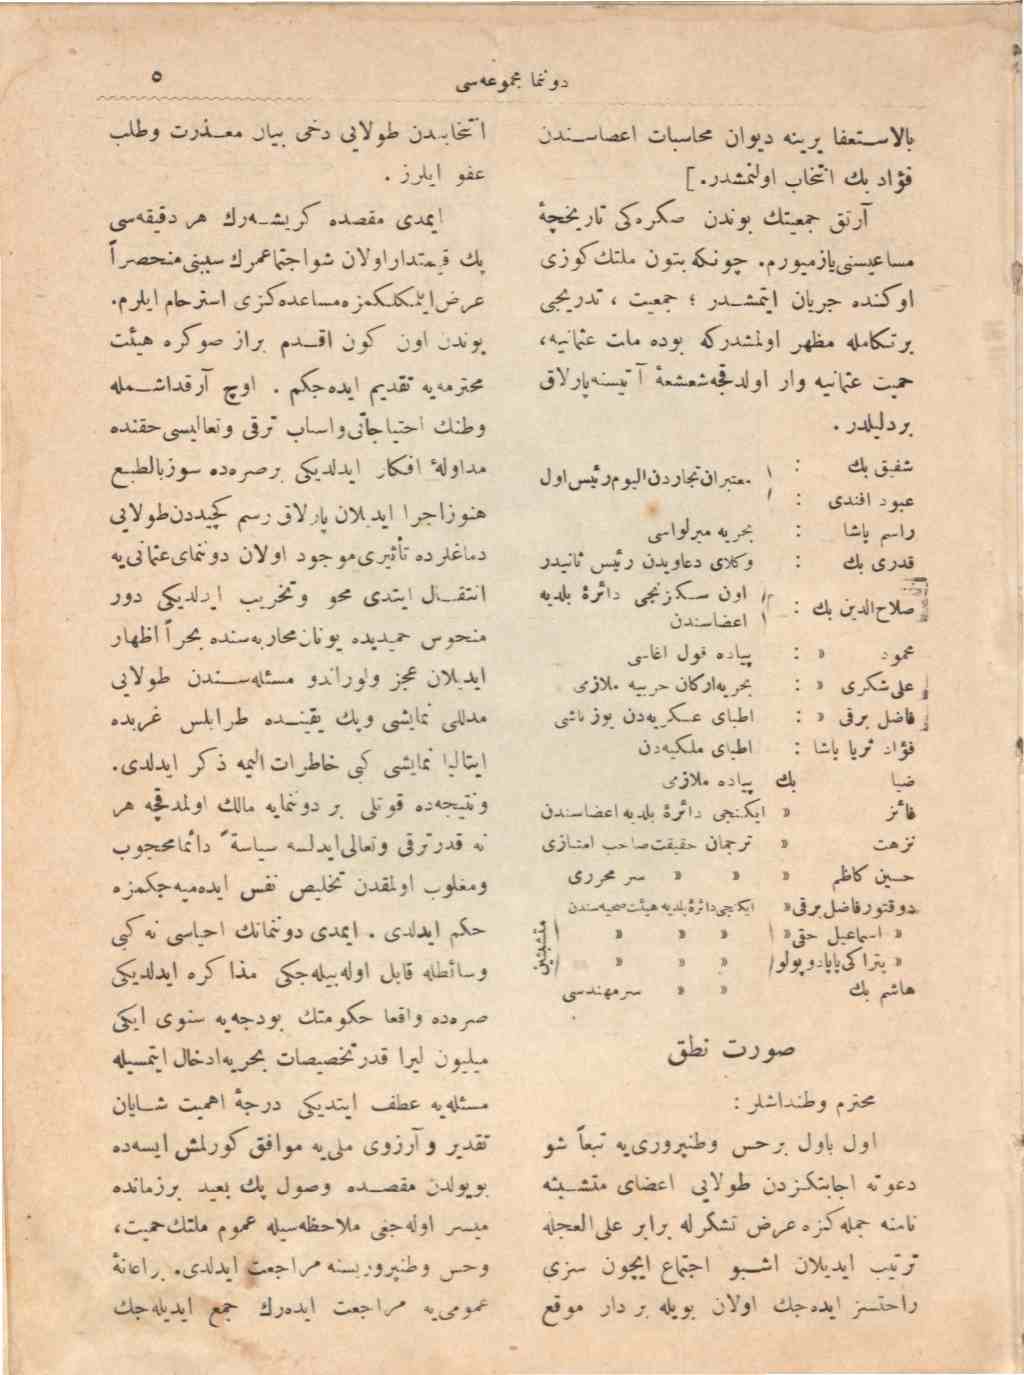 دوننما مجموعه‌سی
٥
بالاستعفا یرینه دیوان محاسبات اعضاسندن
فؤاد بك انتخاب اولنمشدر.]
آرتق جمعیتك بوندن صكره‌كی تاریخچهٔ
مساعیسنی یازمیورم. چونكه بتون ملتك كوزی
اوكنده جریان ایتمشدر ؛ جمعیت ، تدریجی
برتكامله مظهر اولمشدركه بوده ملت عثمانیه،
حمیت عثمانیه وار اولدقجه شعشعهٔ آتیسنه پارلاق
بردلیلدر .
شفیق بك :
عبود افندی :
معتبران تجاردن الیوم رئیس اول
راسم پاشا : بحریه میرلواسی
قدری بك : وكلای دعاویدن رئیس ثانیدر
صلاح‌الدین بك : اون سكزنجی دائرهٔ بلدیه
اعضاسندن
محمود » : پیاده قول اغاسی
علی شكری » : بحریه اركان حربیه ملازمی
فاضل برقی » : اطبای عسكریه‌دن یوزباشی
فؤاد ثریا پاشا : اطبای ملكیه‌دن
ضیا بك پیاده ملازمی
فائز » ایكنجی دائرهٔ بلدیه اعضاسندن
نزهت » ترجمان حقیقت صاحب امتیازی
حسین كاظم » » » سر محرری
دوقتور فاضل برقی » ایكنجی دائرهٔ بلدیه هیئت صحیه‌سندن
» اسماعیل حقی » » » »
» پتراكی پاپادوپولو » » »
متشبثین
هاشم بك » » سرمهندسی
صورت نطق
محترم وطنداشلر :
اول باول برحس وطنپروری‌یه تبعاً شو
دعوته اجابتكزدن طولایی اعضای متشبثه
نامنه جمله‌كزه عرض تشكرله برابر علی‌العجله
ترتیب ایدیلان اشبو اجتماع ایچون سزی
راحتسز ایده‌جك اولان بویله بر دار موقع
انتخابندن طولایی دخی بیان معذرت وطلب
عفو ایلرز .
ایمدی مقصده كریشه‌رك هر دقیقه‌سی
پك قیمتدار اولان شو اجتماعمزك سببنی منحصراً
عرض ایتمكلكمزه مساعده‌كزی استرحام ایلرم.
بوندن اون كون اقدم براز صوكره هیئت
محترمه‌یه تقدیم ایده‌جكم . اوچ آرقداشمله
وطنك احتیاجاتی واسباب ترقی وتعالیسی حقنده
مداولهٔ افكار ایدلدیكی برصره‌ده سوز بالطبع
هنوز اجرا ایدیلان پارلاق رسم كچیددن طولایی
دماغلرده تأثیری موجود اولان دوننمای عثمانی‌یه
انتقال ایتدی محو وتخریب ایدلدیكی دور
منحوس حمیدیده یونان محاربه‌سنده بحراً اظهار
ایدیلان عجز ولوراندو مسئله‌سندن طولایی
مدللی نمایشی وپك یقینده طرابلس غربده
ایتالیا نمایشی كبی خاطرات الیمه ذكر ایدلدی.
ونتیجه‌ده قوتلی بر دوننمایه مالك اولمدقجه هر
نه قدر ترقی وتعالی ایدلسه سیاسةً دائما محجوب
ومغلوب اولمقدن تخلیص نفس ایده‌میه‌جكمزه
حكم ایدلدی . ایمدی دوننمانك احیاسی نه كبی
وسائطله قابل اوله‌بیله‌جكی مذاكره ایدلدیكی
صره‌ده واقعا حكومتك بودجه‌یه سنوی ایكی
میلیون لیرا قدر تخصیصات بحریه ادخال ایتمسیله
مسئله‌یه عطف ایتدیكی درجهٔ اهمیت شایان
تقدیر وآرزوی ملی‌یه موافق كورلمش ایسه‌ده
بویولدن مقصده وصول پك بعید برزمانده
میسر اوله‌جغی ملاحظه‌سیله عموم ملتك حمیت،
وحس وطنپروریسنه مراجعت ایدلدی. براعانهٔ
عمومی‌یه مراجعت ایده‌رك جمع ایدیله‌جك